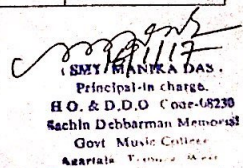 19/1/17
(SMT MANIKA DAS)
Principal-in charge.
H.O. & D.D.O Code-68230
Sachin Debbarman Memorial
Govt Music College
Agartala